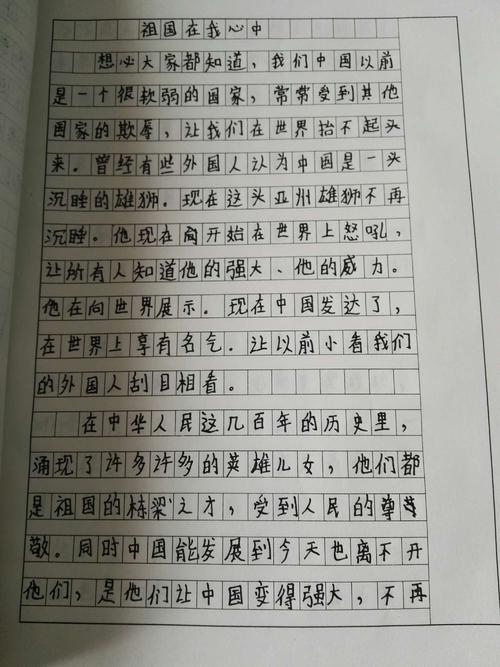 祖国在我心中
想必大家都知道，我们中国以前
是一个很软弱的国家，常常受到其他
国家的欺辱，让我们在世界抬不起头
来。曾经有些外国人认为中国是一头
沉睡的雄狮。现在这头亚州雄狮不再
沉睡。他现在开始在世界上怒吼，
让所有人知道他的强大、他的威力。
他在向世界展示。现在中国发达了，
在世界上享有名气.让以前小看我们
的外国人刮目相看。
在中华人民这几百年的历史里，
涌现了许多许多的英雄儿女，他们都
是祖国的栋梁之才，受到人民的尊
敬。同时中国能发展到今天也离不开
他们，是他们让中国变得强大，不再